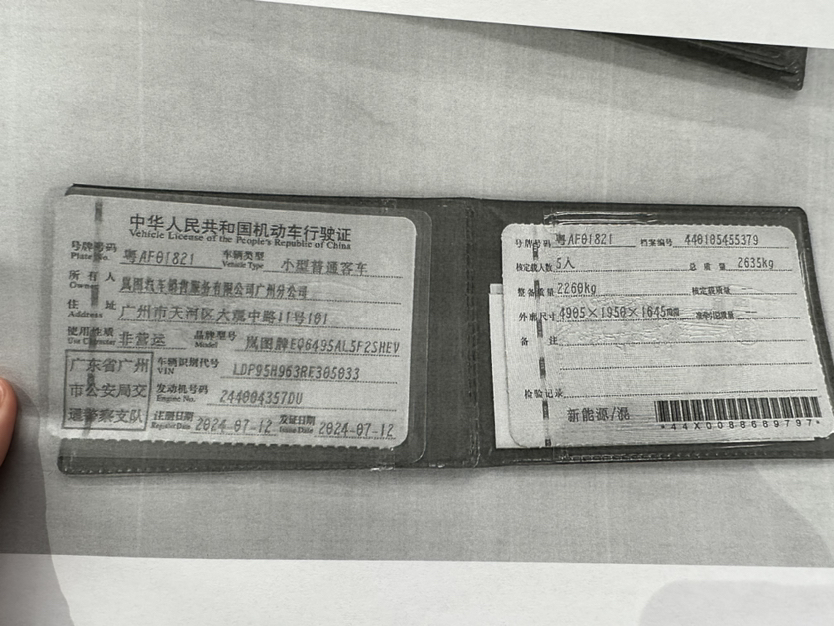 中华人民共和国机动车行驶证
Vehicle License of the People's Republic of China
号牌号码 粤AF01821 车辆类型 小型普通客车
Plate No. Vehicle Type
所有人 岚图汽车销售服务有限公司广州分公司
Owner
住址 广州市天河区大观中路11号101
Address
使用性质 非营运 品牌型号 岚图牌EQ6495AL5F2SHEV
Use Character Model
广东省广州
市公安局交
通警察支队
车辆识别代号 LDP95H963RE305033
VIN
发动机号码 244004357DU
Engine No.
注册日期 2024-07-12 发证日期 2024-07-12
Register Date Issue Date
号牌号码 粤AF01821 档案编号 440105455379
核定载人数 5人 总质量 2635kg
整备质量 2260kg 核定载质量
外廓尺寸 4905×1950×1645mm 准牵引总质量
备注
检验记录
新能源/混
*44X0088689797*